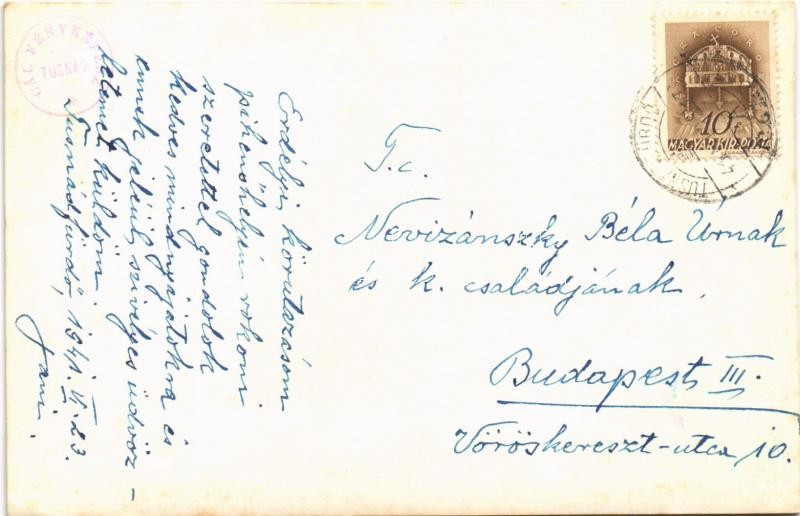 GÁL FÉNYKÉPÉSZ
TUSNÁD
Erdélyi körutazásom
pihenőhelyén rokoni
szeretettel gondolok
kedves mindnyájatokra és
ennek jeléül szivélyes üdvöz-
letemet küldöm.
Tusnádfürdő, 1941. VI. 23.
Jani.
10f
MAGYAR KIR. POSTA
T. c.
Nevizánszky Béla Úrnak
és k. családjának.
Budapest III.
Vöröskereszt-utca 10.